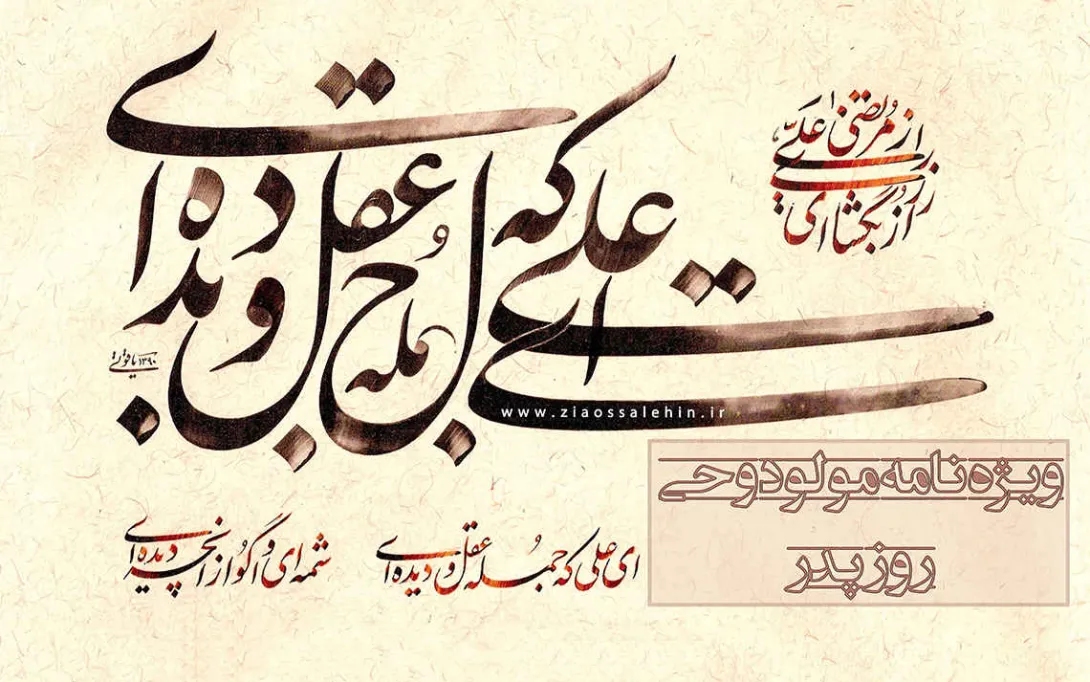 ای علی که جمله عقل و دیده‌ای
راز بگشا ای علی مرتضی
www.ziaossalehin.ir
ویژه نامه مولود وحی
روز پدر
ای علی که جمله عقل و دیده‌ای
شمه‌ای واگو از آنچه دیده‌ای